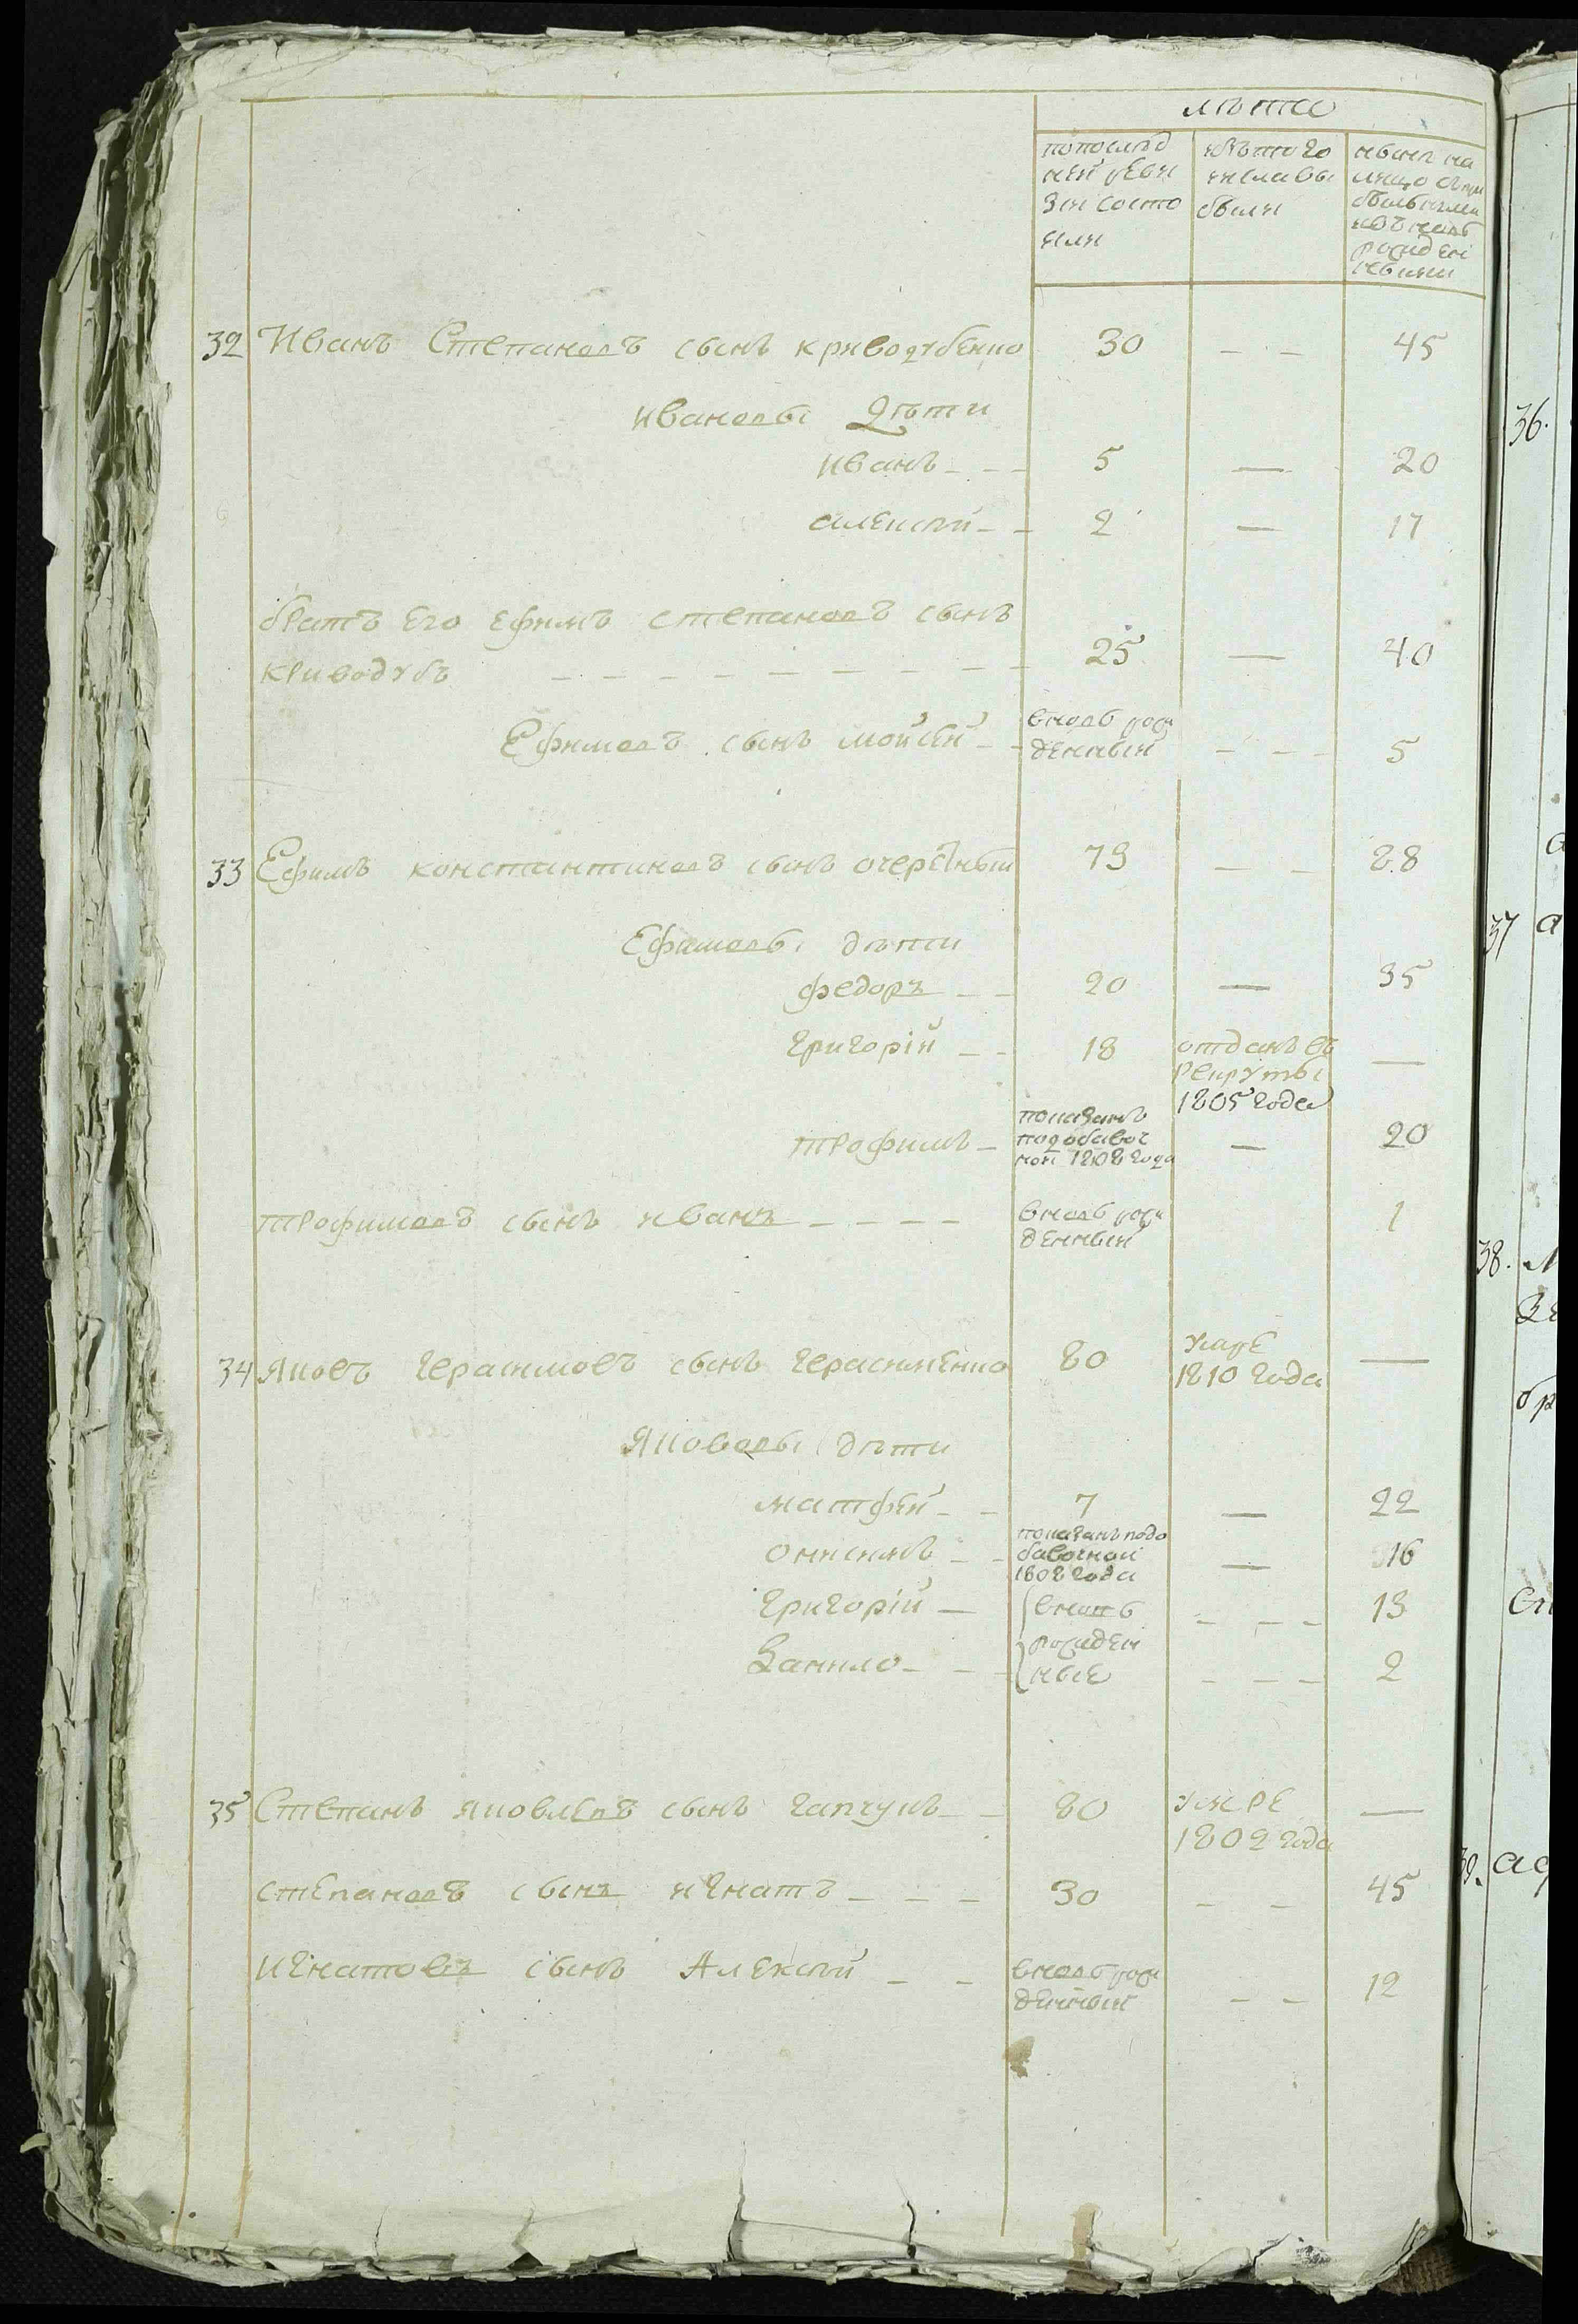 лѣта
попослѣд
ней реви
зіи состо
яли
изътого
числа вы
были
ныне на
лицо съпри
былыми
изъновь
рожден
ными
32 Иванъ Степановъ сынъ криводубенко 30 — — 45
ивановы дѣти
иванъ — — 5 — 20
алексѣй — — 2 — 17
братъ его ефимъ степановъ сынъ
криводубъ — — — — — — — — — 25 — 40
Ефимовъ сынъ мойсей — — вновь рож
денный — — — 5
33 Ефимъ константиновъ сынъ очерѣтный 73 — — 88
Ефимовы дѣти
федоръ — — 20 — 35
григорій — — 18 отданъ въ
рекруты
1805 года —
трофимъ — показанъ
подобавоч
ной 1808 года — 20
трофимовъ сынъ иванъ — — — — вновь рож
денный 1
34 яковъ герасимовъ сынъ герасименко 80 умре
1810 года —
яковovы дѣти
матфей — — 7 — 22
онисимъ — — показанъ подо
бавочной
1808 года — 16
григорій — вновь — — — 13
рожден
Данило — — ные — — — 2
35 Степанъ яковлевъ сынъ гапчукъ — — 80 умре
1802 года —
степановъ сынъ игнатъ — — — 30 — — 45
игнатовъ сынъ Алексѣй — — вновь рож
денный — — 12
36.
37 а
38.
бр
39.